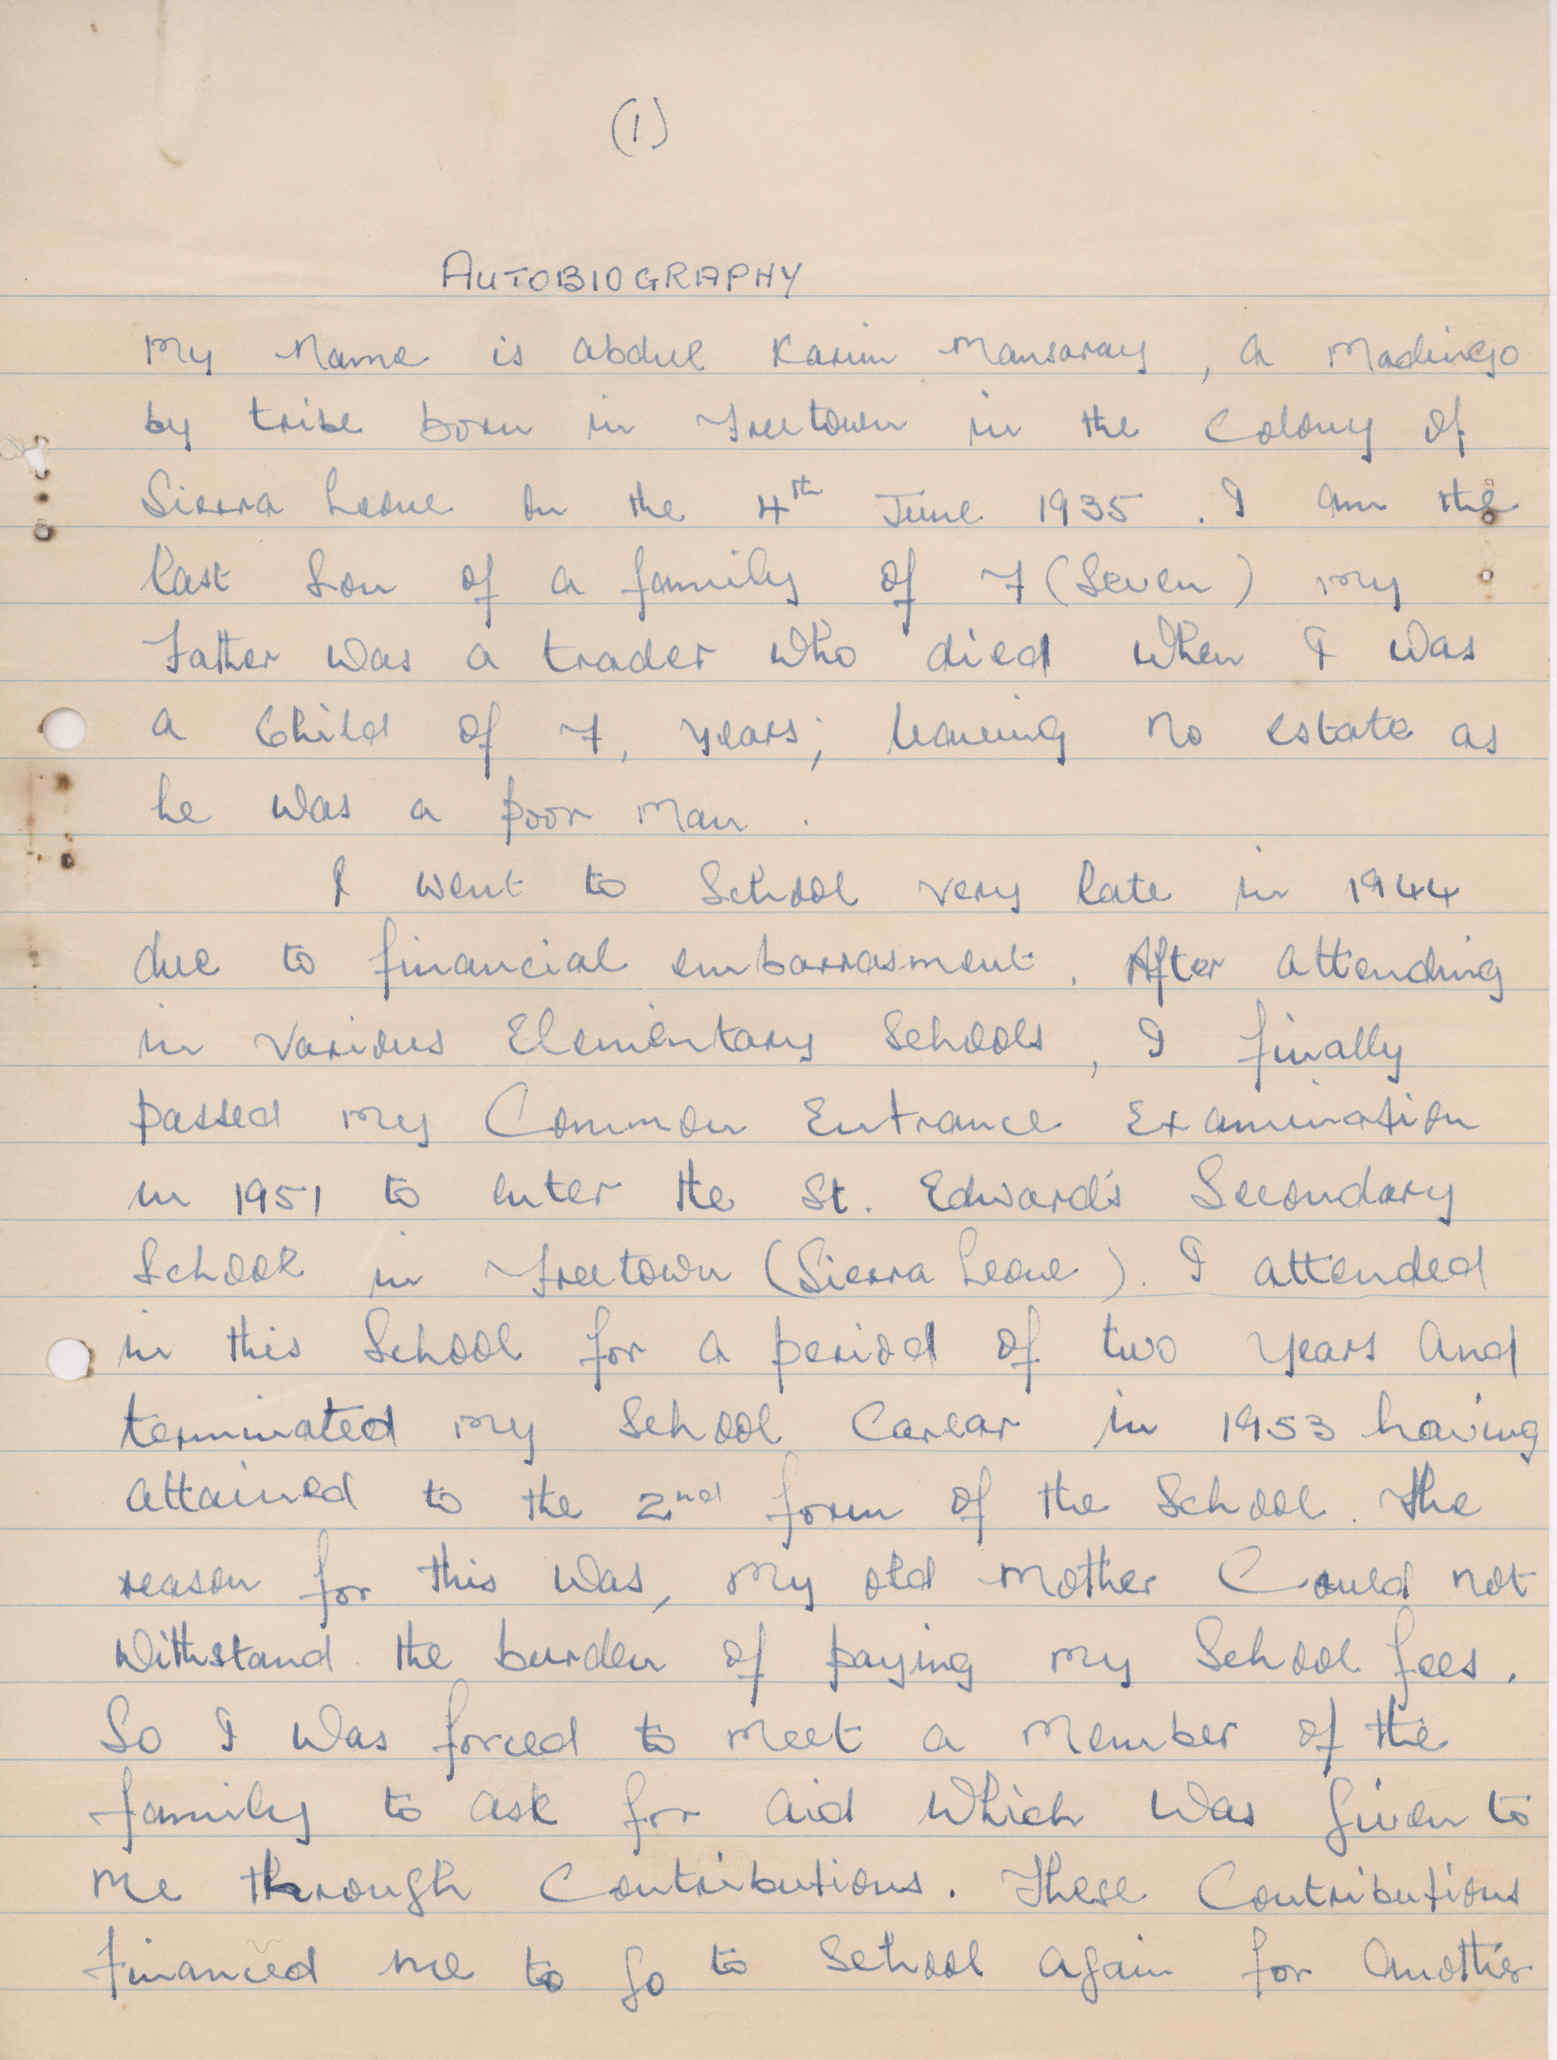 (1)
AUTOBIOGRAPHY
My Name is abdul Karim Mansaray, a Madingo
by tribe born in Freetown in the Colony of
Sierra Leone on the 4th June 1935. I am the
last Son of a family of 7 (Seven) my
Father was a trader who died when I was
a Child of 7, years; leaving no estate as
he was a poor man.
I went to School very late in 1944
due to financial embarrasment. After attending
in various Elementary Schools, I finally
passed my Common Entrance Examination
in 1951 to enter the St. Edward's Secondary
School in Freetown (Sierra Leone). I attended
in this School for a period of two years and
terminated my School Carear in 1953 having
attained to the 2nd form of the School. The
reason for this was, my old mother Could not
withstand the burden of paying my School fees.
So I was forced to meet a member of the
family to ask for aid which was given to
me through Contributions. These Contributions
financed me to go to School again for another